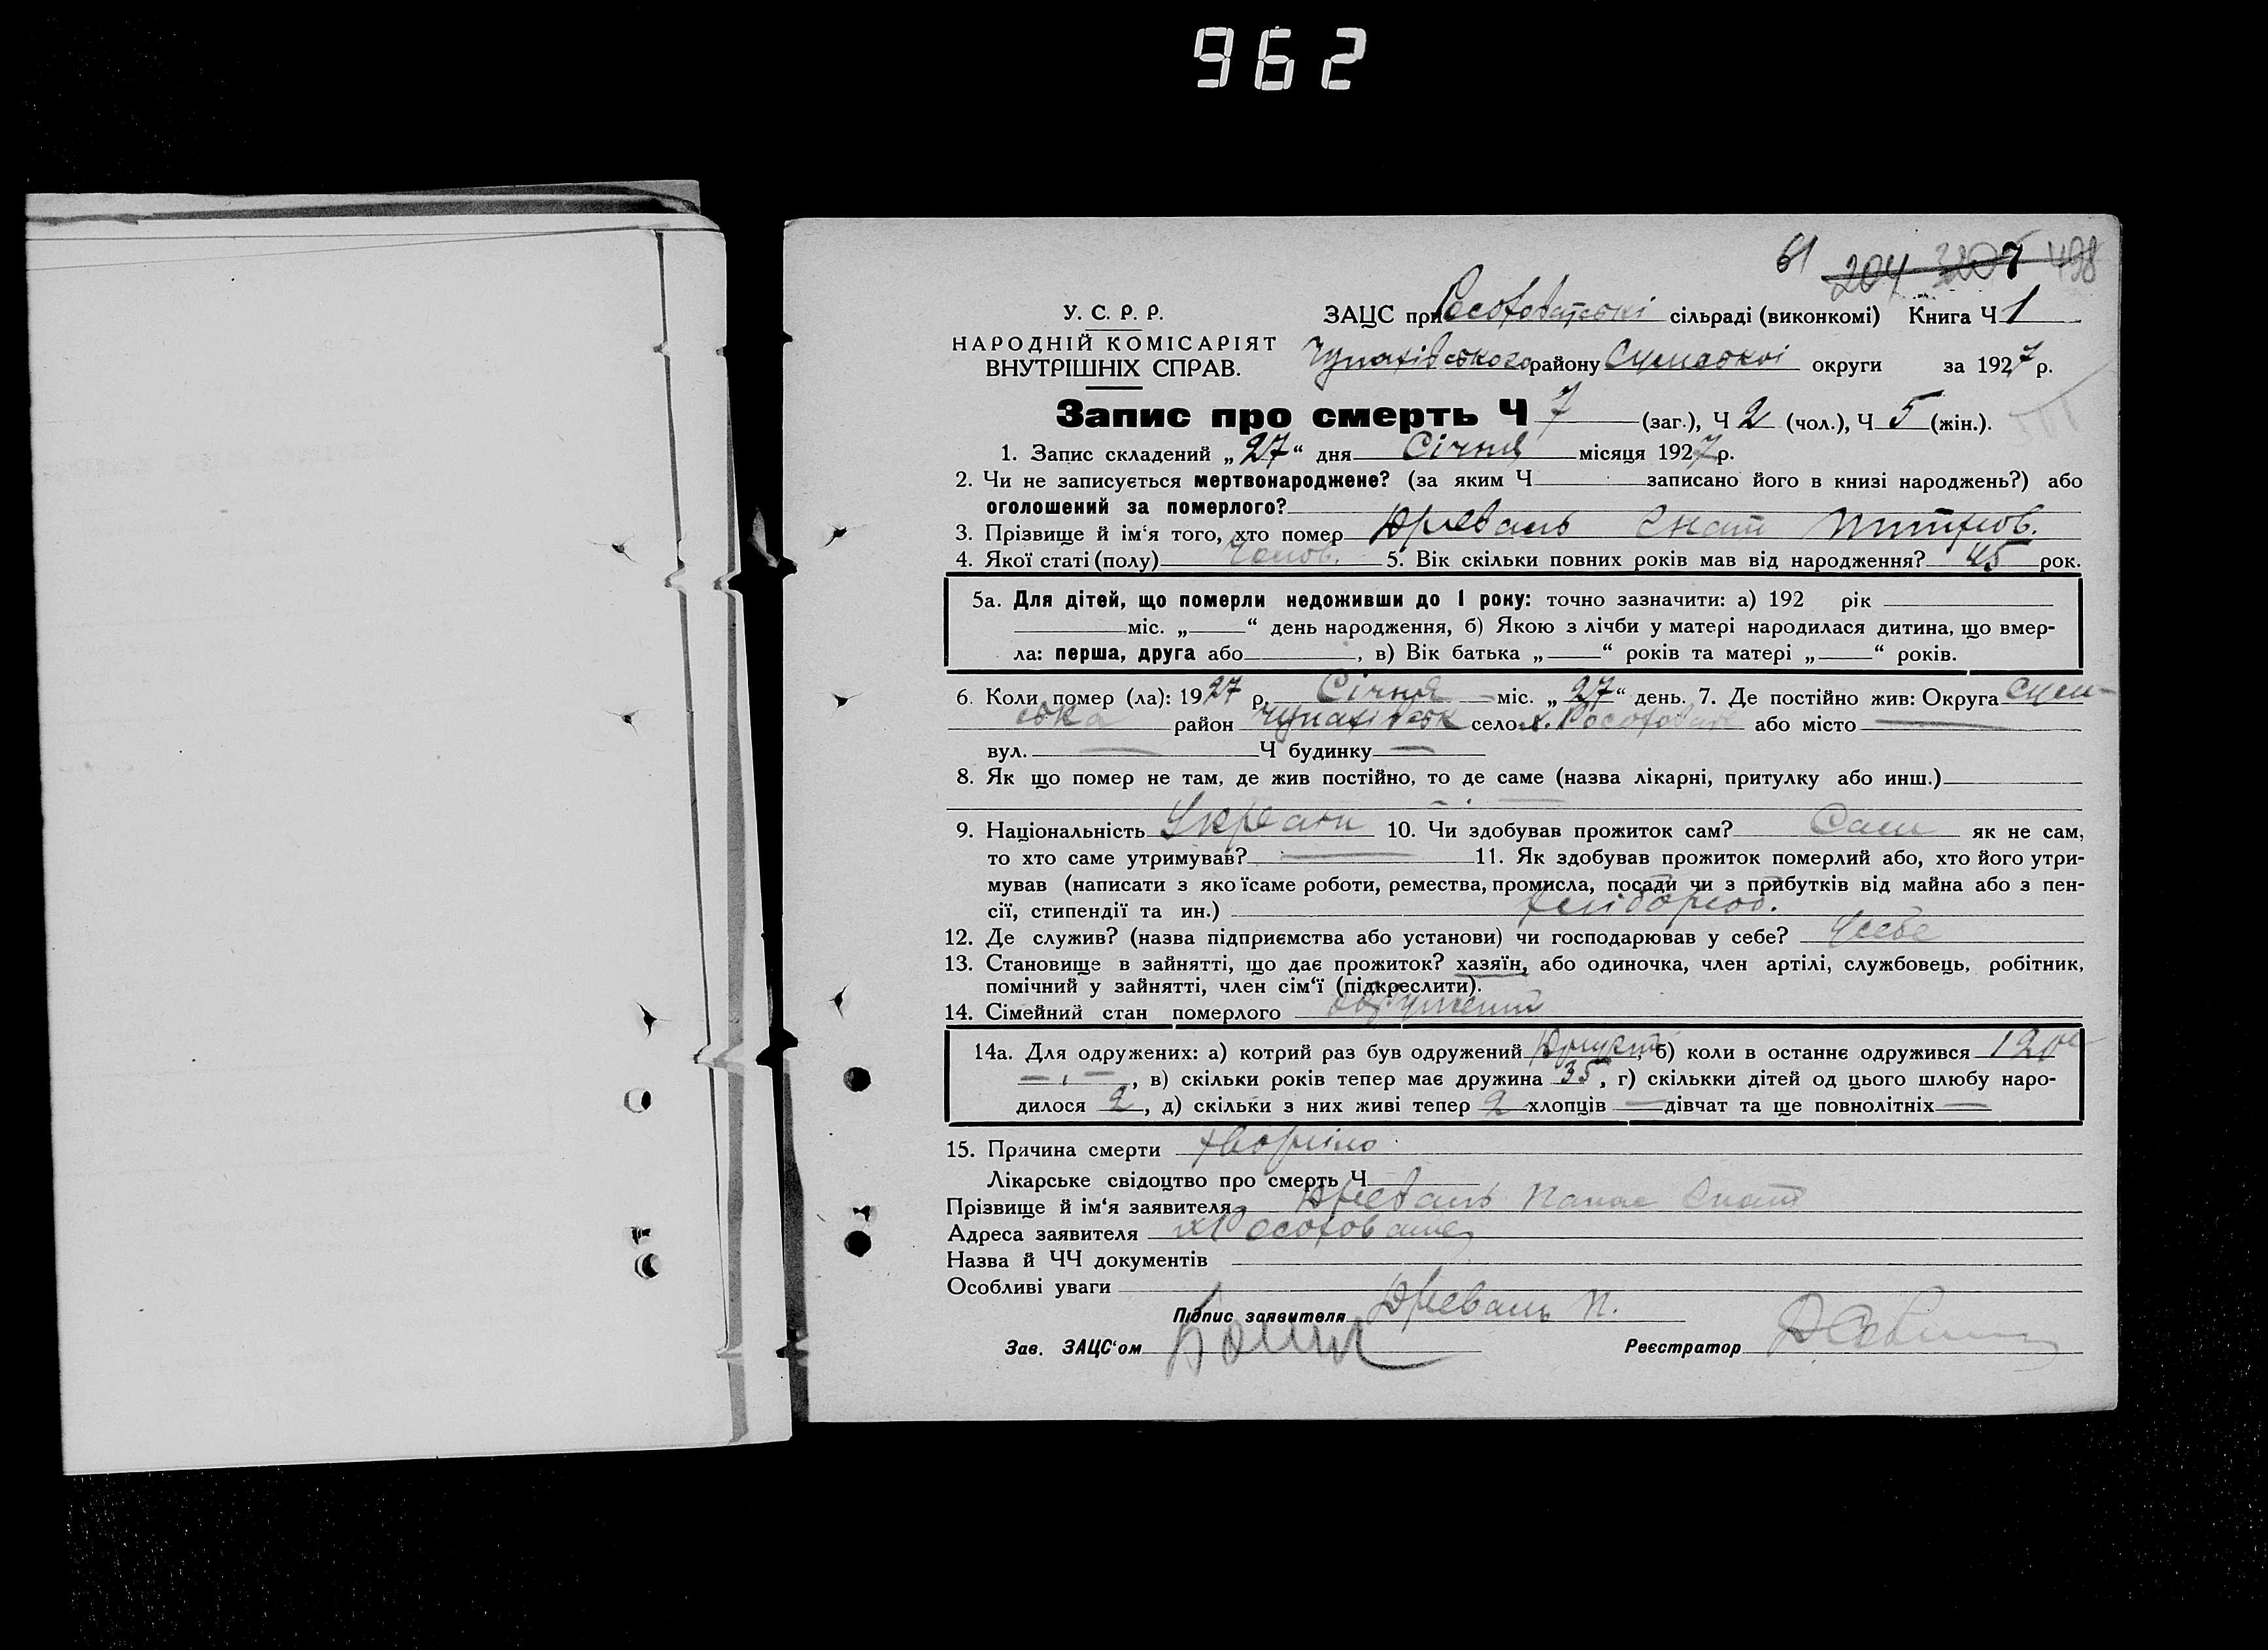 962
61 204 498
У. С. Р. Р.
НАРОДНІЙ КОМІСАРІЯТ
ВНУТРІШНІХ СПРАВ.
ЗАЦС при сільраді (виконкомі) Книга Ч 1
Чупахівського району Сумської округи за 1927 р.
Запис про смерть Ч 7 (заг.), Ч 2 (чол.), Ч 5 (жін.).
1. Запис складений „27“ дня Січня місяця 1927 р.
2. Чи не записується мертвонароджене? (за яким Ч записано його в книзі народжень?) або
оголошений за померлого?
3. Прізвище й ім‘я того, хто помер Древаль Гнат
4. Якої статі (полу) Чолов. 5. Вік скільки повних років мав від народження? 45 рок.
5а. Для дітей, що померли недоживши до 1 року: точно зазначити: а) 192 рік
міс. „ “ день народження, б) Якою з лічби у матері народилася дитина, що вмер-
ла: перша, друга або , в) Вік батька „ “ років та матері „ “ років.
6. Коли помер (ла): 1927 р. Січня міс. „27“ день. 7. Де постійно жив: Округа Сум-
ська район Чупахівськ село х. або місто —
вул. — Ч будинку —
8. Як що помер не там, де жив постійно, то де саме (назва лікарні, притулку або инш.)
9. Національність 10. Чи здобував прожиток сам? Сам як не сам,
то хто саме утримував? — 11. Як здобував прожиток померлий або, хто його утри-
мував (написати з якоїсаме роботи, ремества, промисла, посади чи з прибутків від майна або з пен-
сії, стипендії та ин.) хлібороб.
12. Де служив? (назва підприємства або установи) чи господарював у себе? Усебе
13. Становище в зайнятті, що дає прожиток? хазяїн, або одиночка, член артілі, службовець, робітник,
помічний у зайнятті, член сім‘ї (підкреслити).
14. Сімейний стан померлого
14а. Для одружених: а) котрий раз був одружений , б) коли в останнє одружився
, в) скільки років тепер має дружина 35, г) скількки дітей од цього шлюбу наро-
дилося 2, д) скільки з них живі тепер 2 хлопців — дівчат та ще повнолітніх —
15. Причина смерти
Лікарське свідоцтво про смерть Ч
Прізвище й ім‘я заявителя Древаль Панас Гнат
Адреса заявителя
Назва й ЧЧ документів
Особливі уваги
Підпис заявителя Древаль П.
Зав. ЗАЦС‘ом Реєстратор